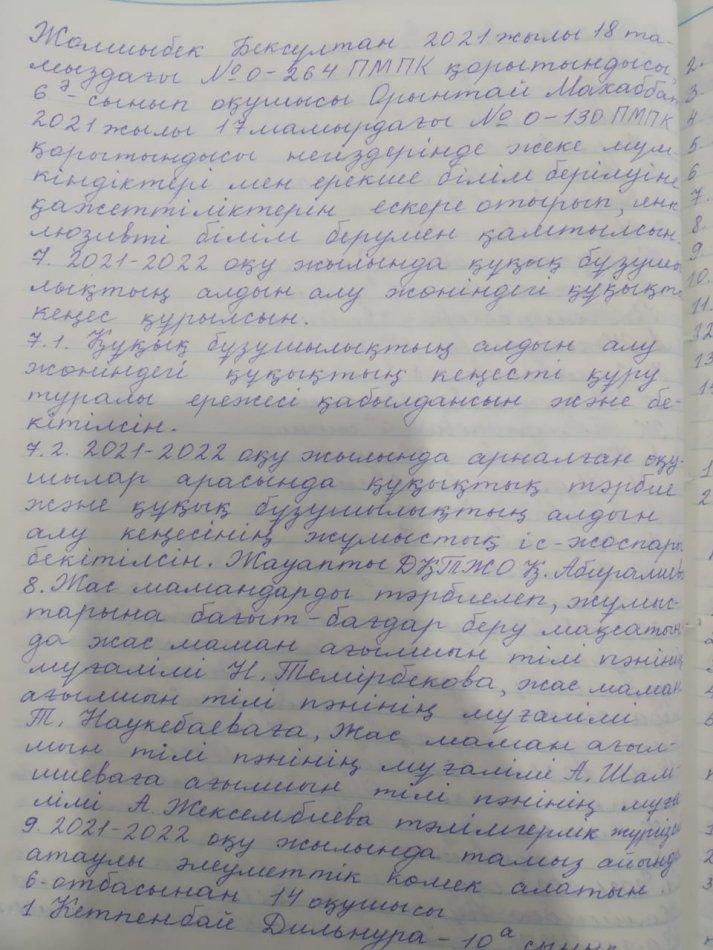 Жомшыбек Бексултан 2021 жылы 18 та-
мыздағы №0-264 ПМПК қорытындысы,
6 ә - сынып оқушысы Орынтай Махаббат
2021 жылы 17 мамырдағы №0-130 ПМПК
қорытындысы негіздерінде жеке мүм-
кіндіктері мен ерекше білім берілуіне
қажеттіліктерін ескере отырып, инк
люзивті білім берумен қамтылсын.
7. 2021-2022 оқу жылында құқық бұзушы
лықтың алдын алу жөніндегі құқықт
кеңес құрылсын.
7.1. Құқық бұзушылықтың алдын алу
жөніндегі құқықтың кеңесті құру
туралы ережесі қабылдансын және бе-
кітілсін.
7.2. 2021-2022 оқу жылында арналған оқу-
шылар арасында құқықтық тәрбие
және құқық бұзушылықтың алдын
алу кеңесінің жұмыстық іс-жоспары
бекітілсін. Жауапты ДҚТЖО Қ.
8. Жас мамандарды тәрбиелеп, жұмыс-
тарына бағыт-бағдар беру мақсатын
да жас маман ағылшын тілі пәнінің
мұғалімі Н. Темірбекова, жас маман
ағылшын тілі пәнінің мұғалімі
Т. Наукебаеваға, жас маман ағыл-
шын тілі пәнінің мұғалімі А. Шам
шиеваға ағылшын тілі пәнінің мұға
лімі А. Жексембиева тәлімгерлік жүргізсі
9. 2021-2022 оқу жылында тамыз айынд
атаулы әлеуметтік көмек алатын
6-отбасынан 14 оқушысы
1 Кетпенбай Дильнура - 10 а сынып